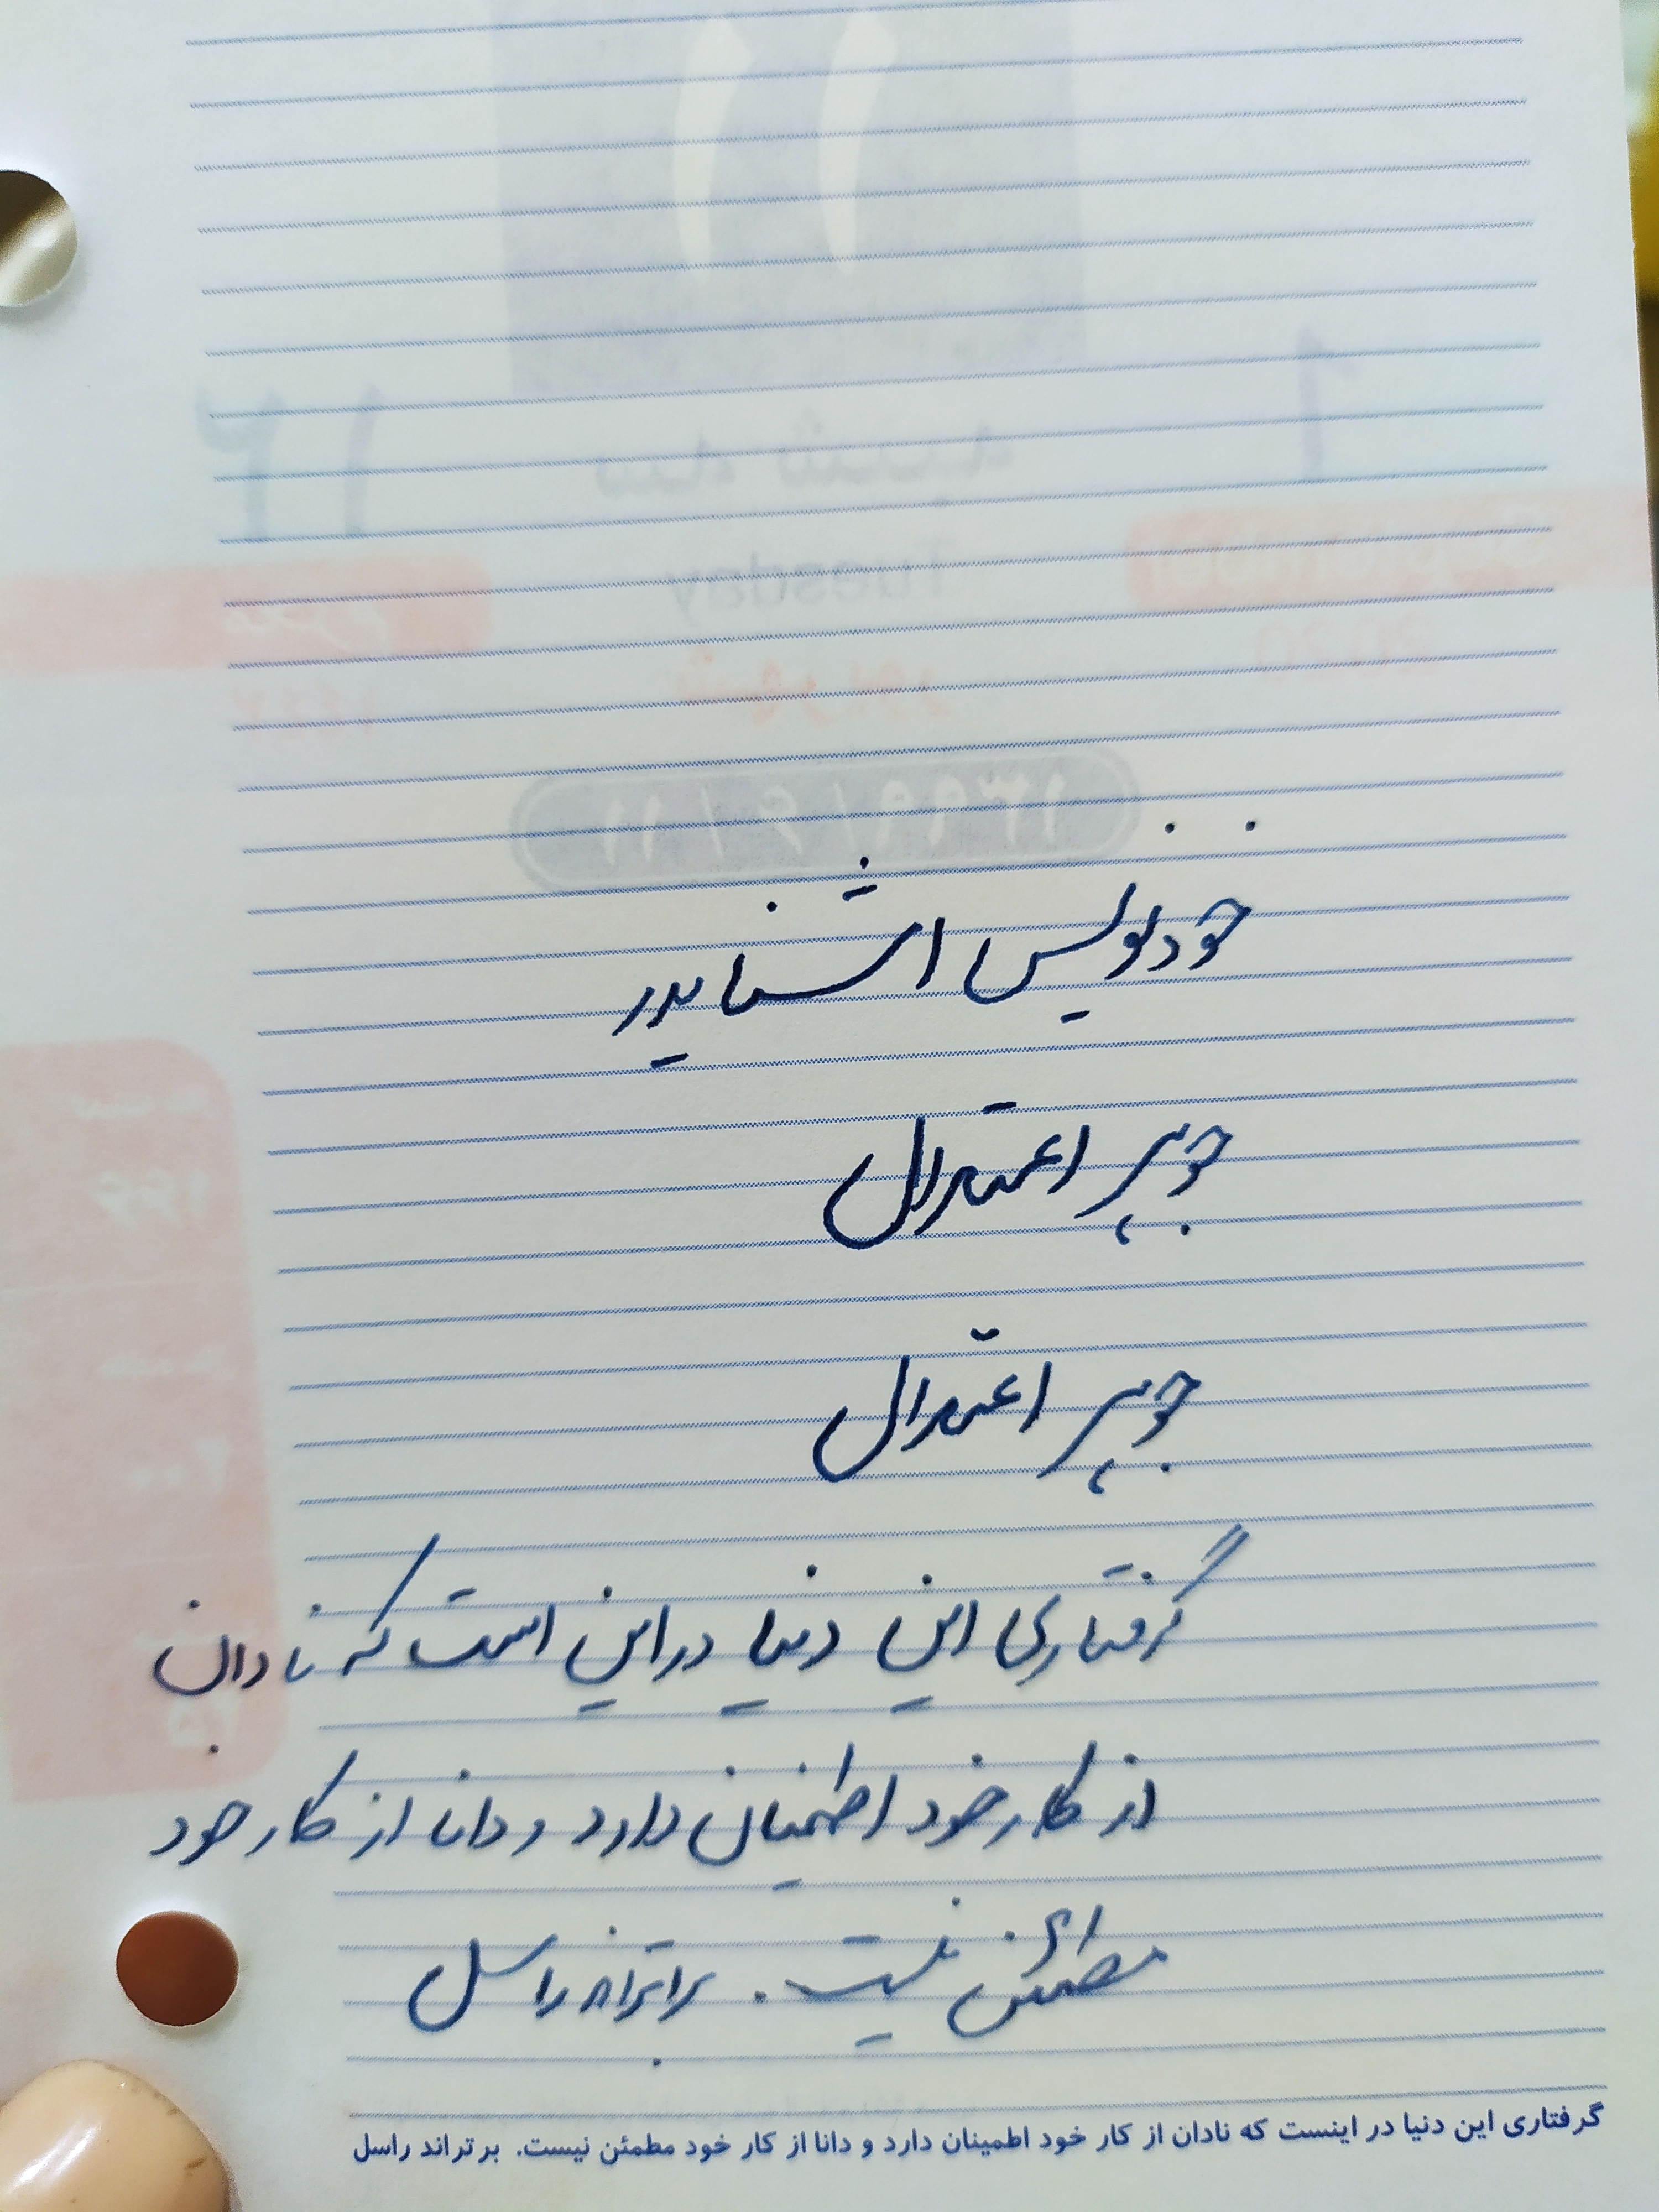 خودنویس اشنایدر
جوهر اعتدال
جوهر اعتدال
گرفتاری این دنیا در این است که نادان
از کار خود اطمینان دارد و دانا از کار خود
مطمئن نیست. براتراند راسل
گرفتاری این دنیا در اینست که نادان از کار خود اطمینان دارد و دانا از کار خود مطمئن نیست. برتراند راسل